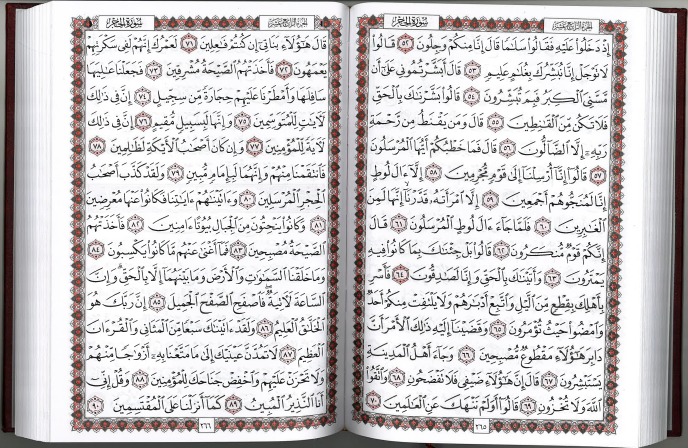 سورة الحجر
الجزء الرابع عشر
إِذْ دَخَلُوا۟ عَلَيْهِ فَقَالُوا۟ سَلَٰمًا قَالَ إِنَّا مِنكُمْ وَجِلُونَ ٥٢ قَالُوا۟
لَا تَوْجَلْ إِنَّا نُبَشِّرُكَ بِغُلَٰمٍ عَلِيمٍ ٥٣ قَالَ أَبَشَّرْتُمُونِى عَلَىٰٓ أَن
مَّسَّنِىَ ٱلْكِبَرُ فَبِمَ تُبَشِّرُونَ ٥٤ قَالُوا۟ بَشَّرْنَٰكَ بِٱلْحَقِّ
فَلَا تَكُن مِّنَ ٱلْقَٰنِطِينَ ٥٥ قَالَ وَمَن يَقْنَطُ مِن رَّحْمَةِ
رَبِّهِۦٓ إِلَّا ٱلضَّآلُّونَ ٥٦ قَالَ فَمَا خَطْبُكُمْ أَيُّهَا ٱلْمُرْسَلُونَ
٥٧ قَالُوٓا۟ إِنَّآ أُرْسِلْنَآ إِلَىٰ قَوْمٍ مُّجْرِمِينَ ٥٨ إِلَّآ ءَالَ لُوطٍ
إِنَّا لَمُنَجُّوهُمْ أَجْمَعِينَ ٥٩ إِلَّا ٱمْرَأَتَهُۥ قَدَّرْنَآ إِنَّهَا لَمِنَ
ٱلْغَٰبِرِينَ ٦٠ فَلَمَّا جَآءَ ءَالَ لُوطٍ ٱلْمُرْسَلُونَ ٦١ قَالَ
إِنَّكُمْ قَوْمٌ مُّنكَرُونَ ٦٢ قَالُوا۟ بَلْ جِئْنَٰكَ بِمَا كَانُوا۟ فِيهِ
يَمْتَرُونَ ٦٣ وَأَتَيْنَٰكَ بِٱلْحَقِّ وَإِنَّا لَصَٰدِقُونَ ٦٤ فَأَسْرِ
بِأَهْلِكَ بِقِطْعٍ مِّنَ ٱلَّيْلِ وَٱتَّبِعْ أَدْبَٰرَهُمْ وَلَا يَلْتَفِتْ مِنكُمْ أَحَدٌ
وَٱمْضُوا۟ حَيْثُ تُؤْمَرُونَ ٦٥ وَقَضَيْنَآ إِلَيْهِ ذَٰلِكَ ٱلْأَمْرَ أَنَّ
دَابِرَ هَٰٓؤُلَآءِ مَقْطُوعٌ مُّصْبِحِينَ ٦٦ وَجَآءَ أَهْلُ ٱلْمَدِينَةِ
يَسْتَبْشِرُونَ ٦٧ قَالَ إِنَّ هَٰٓؤُلَآءِ ضَيْفِى فَلَا تَفْضَحُونِ ٦٨ وَٱتَّقُوا۟
ٱللَّهَ وَلَا تُخْزُونِ ٦٩ قَالُوٓا۟ أَوَلَمْ نَنْهَكَ عَنِ ٱلْعَٰلَمِينَ ٧٠
٢٦٥
الجزء الرابع عشر
سورة الحجر
قَالَ هَٰٓؤُلَآءِ بَنَاتِىٓ إِن كُنتُمْ فَٰعِلِينَ ٧١ لَعَمْرُكَ إِنَّهُمْ لَفِى سَكْرَتِهِمْ
يَعْمَهُونَ ٧٢ فَأَخَذَتْهُمُ ٱلصَّيْحَةُ مُشْرِقِينَ ٧٣ فَجَعَلْنَا عَٰلِيَهَا
سَافِلَهَا وَأَمْطَرْنَا عَلَيْهِمْ حِجَارَةً مِّن سِجِّيلٍ ٧٤ إِنَّ فِى ذَٰلِكَ
لَءَايَٰتٍ لِّلْمُتَوَسِّمِينَ ٧٥ وَإِنَّهَا لَبِسَبِيلٍ مُّقِيمٍ ٧٦ إِنَّ فِى ذَٰلِكَ
لَءَايَةً لِّلْمُؤْمِنِينَ ٧٧ وَإِن كَانَ أَصْحَٰبُ ٱلْأَيْكَةِ لَظَٰلِمِينَ ٧٨
فَٱنتَقَمْنَا مِنْهُمْ وَإِنَّهُمَا لَبِإِمَامٍ مُّبِينٍ ٧٩ وَلَقَدْ كَذَّبَ أَصْحَٰبُ
ٱلْحِجْرِ ٱلْمُرْسَلِينَ ٨٠ وَءَاتَيْنَٰهُمْ ءَايَٰتِنَا فَكَانُوا۟ عَنْهَا مُعْرِضِينَ
٨١ وَكَانُوا۟ يَنْحِتُونَ مِنَ ٱلْجِبَالِ بُيُوتًا ءَامِنِينَ ٨٢ فَأَخَذَتْهُمُ
ٱلصَّيْحَةُ مُصْبِحِينَ ٨٣ فَمَآ أَغْنَىٰ عَنْهُم مَّا كَانُوا۟ يَكْسِبُونَ ٨٤
وَمَا خَلَقْنَا ٱلسَّمَٰوَٰتِ وَٱلْأَرْضَ وَمَا بَيْنَهُمَآ إِلَّا بِٱلْحَقِّ وَإِنَّ
ٱلسَّاعَةَ لَءَاتِيَةٌ فَٱصْفَحِ ٱلصَّفْحَ ٱلْجَمِيلَ ٨٥ إِنَّ رَبَّكَ هُوَ
ٱلْخَلَّٰقُ ٱلْعَلِيمُ ٨٦ وَلَقَدْ ءَاتَيْنَٰكَ سَبْعًا مِّنَ ٱلْمَثَانِى وَٱلْقُرْءَانَ
ٱلْعَظِيمَ ٨٧ لَا تَمُدَّنَّ عَيْنَيْكَ إِلَىٰ مَا مَتَّعْنَا بِهِۦٓ أَزْوَٰجًا مِّنْهُمْ
وَلَا تَحْزَنْ عَلَيْهِمْ وَٱخْفِضْ جَنَاحَكَ لِلْمُؤْمِنِينَ ٨٨ وَقُلْ إِنِّىٓ
أَنَا ٱلنَّذِيرُ ٱلْمُبِينُ ٨٩ كَمَآ أَنزَلْنَا عَلَى ٱلْمُقْتَسِمِينَ ٩٠
٢٦٦